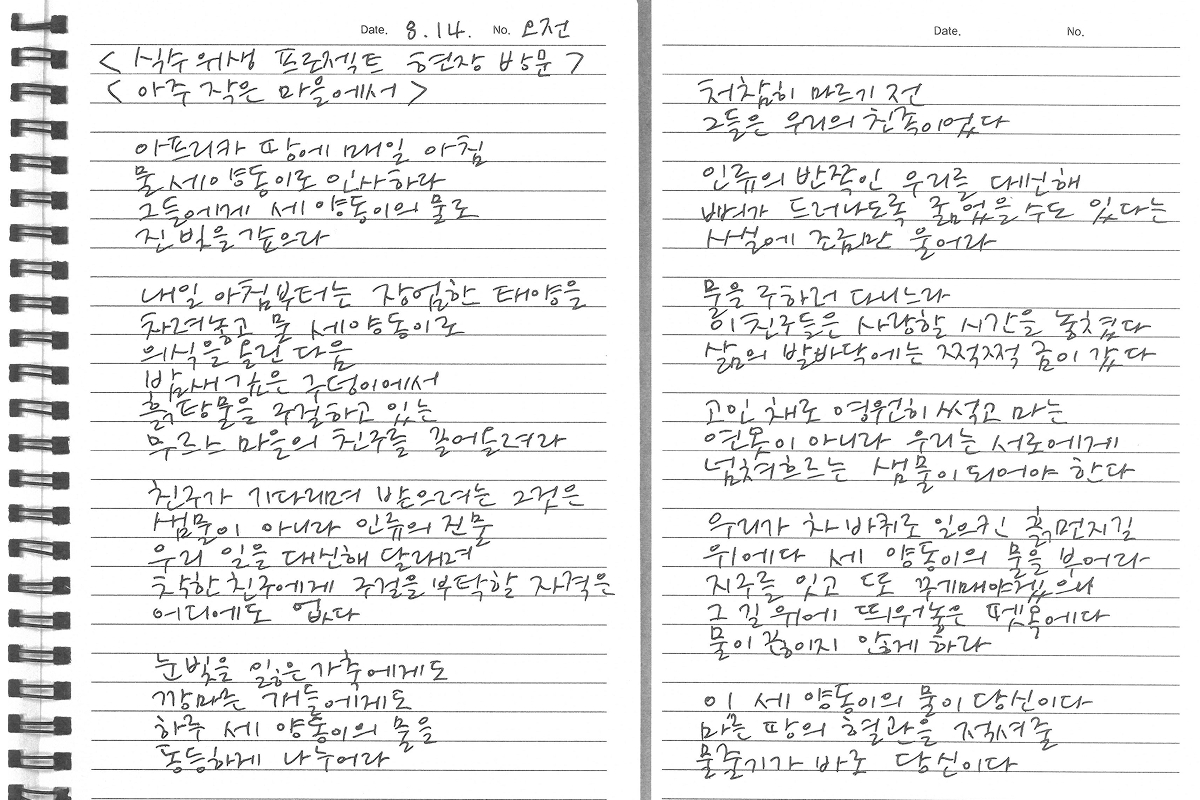 Date. 8.14. No. 오전
< 식수위생 프로젝트 현장 방문 >
< 아주 작은 마을에서 >
아프리카 땅에 매일 아침
물 세 양동이로 인사하라
그들에게 세 양동이의 물로
진 빚을 갚으라
내일 아침부터는 장엄한 태양을
차려놓고 물 세 양동이로
의식을 올린 다음
밤새 깊은 구덩이에서
흙탕물을 구걸하고 있는
무르스 마을의 친구를 끌어올려라
친구가 기다리며 받으려는 그것은
샘물이 아니라 인류의 진물
우리 일을 대신해 달라며
착한 친구에게 구걸을 부탁할 자격은
어디에도 없다
눈빛을 잃은 가축에게도
깡마른 개들에게도
하루 세 양동이의 물을
동등하게 나누어라
Date. No.
처참히 마르기 전
그들은 우리의 친족이었다
인류의 반쪽인 우리를 대신해
뼈가 드러나도록 굶었을 수도 있다는
사실에 조금만 울어라
물을 구하러 다니느라
이 친구들은 사랑할 시간을 놓쳤다
삶의 발바닥에는 쩍쩍 금이 갔다
고인 채로 영원히 썩고 마는
연못이 아니라 우리는 서로에게
넘쳐흐르는 샘물이 되어야 한다
우리가 차 바퀴로 일으킨 흙먼지길
위에다 세 양동이의 물을 부어라
지구를 잇고 또 꿰매야겠으나
그 길 위에 띄워놓은 뗏목에다
물이 끊이지 않게 하라
이 세 양동이의 물이 당신이다
마른 땅의 혈관을 적셔줄
물줄기가 바로 당신이다